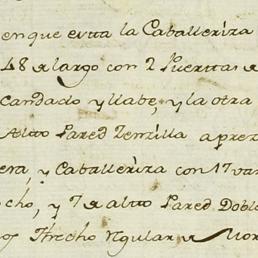 en que evita la Caballeriza
48 de largo con 2 Puertas de
candado y llabe, y la otra
Alto Pared Zenzilla a prez
era, y Caballeriza con 17 var
ocho, y 7 de alto Pared Doble
os Htrecho Ngular y Mor